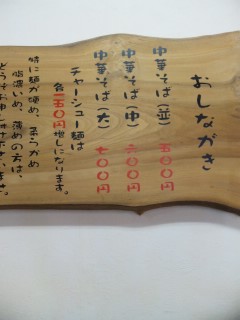 おしながき
中華そば(並) 五〇〇円
中華そば(中) 六〇〇円
中華そば(大) 七〇〇円
チャーシュー麺は
各一五〇円増しになります。
特に麺が硬め、柔らかめ
脂濃いめ、薄めの方は、
どうぞお申しつけ下さいませ。